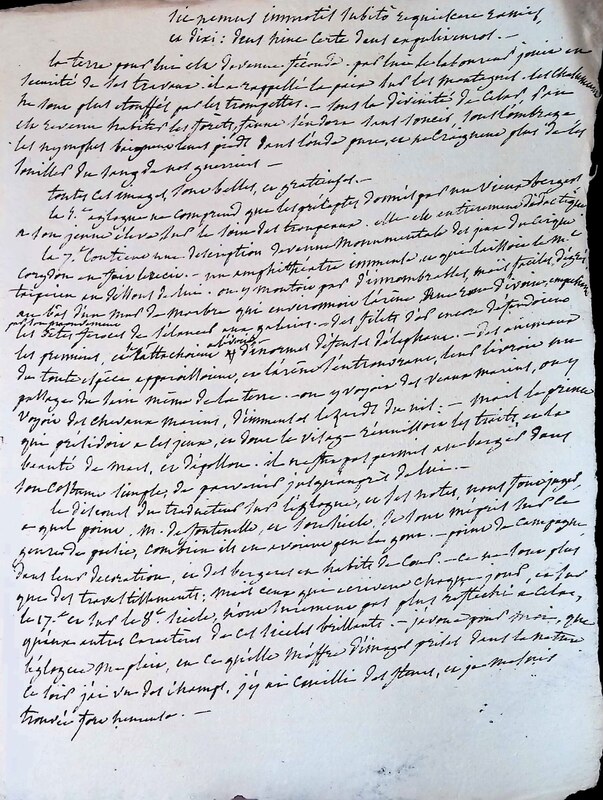 sic nemus immotis subito requiescere ramis,
et dixi : deus hinc certe deus expulit euros. —
la terre pour lui est devenue féconde. par lui le laboureur jouit en
sécurité de ses travaux. il a rappellé la paix sur les montagnes. les chalumeaux
ne sont plus étouffés par les trompettes. — sous la divinité de César, Pan
est revenu habiter les forêts, faune s'endort sans soucis, sous l'ombrage
les nymphes baignent leurs pieds dans l'onde pure, et ne craignent plus de les
souiller du sang de nos guerriers —
toutes ces images sont belles, et gratieuses. —
la 5.e églogue ne comprend que les préceptes donnés par un vieux berger
a son jeune élève sur le soin des troupeaux. elle est entierement didactique
la 7.e contient une description devenue monumentale des jeux du cirque
Corydon en fait le récit. un amphithéatre immense, et qui laissoit le M.
tarpeien en dessous de lui. on y montoit par d'innombrables, mais faciles, degrés
au bas d'un mur de marbre qui environnoit l'arène une roue d'ivoire, empechoit
par son mouvement
les bêtes féroces de s'élancer aux galeries. — des filets d'or encore défendoient
les premiers, et s'attachoient à d'énormes défenses d'éléphans. — des animaux
de toute espèce apparoissoient, et l'arène s'entrouvrant, leur livroit un
passage du sein même de la terre. — on y voyoit des veaux marins, on y
voyoit des chevaux marins, d'immenses lezards du nil : — mais le prince
qui présidoit a ces jeux, et dont le visage réunissoit les traits, et la
beauté de mars, et d'apollon. il ne fut pas permis au berger dans
son costume simple, de parvenir jusques auprès de lui. —
le discours du traducteur sur l'églogue, et ses notes, nous font juger,
a quel point, M. de fontenelle, et son siècle, se sont mepris sur ce
genre de poesie, combien ils en avoient peu le gout. — point de campagne
dans leur décoration, et des bergeres en habits de Cour. — ce ne sont plus
que des travestissements ; mais ceux qui ecrivent chaque jour, et sur
le 17.e et sur le 8.e siècle, n'ont surement pas plus réflechi a celui,
qu'aux autres caracteres de ces siecles brillants. — j'avoue pour moi, que
l'églogue me plait, en ce qu'elle m'offre d'images prises dans la nature
ce soir j'ai vu des champs, j'y ai cueilli des fleurs, et je me suis
trouvée fort heureuse. —